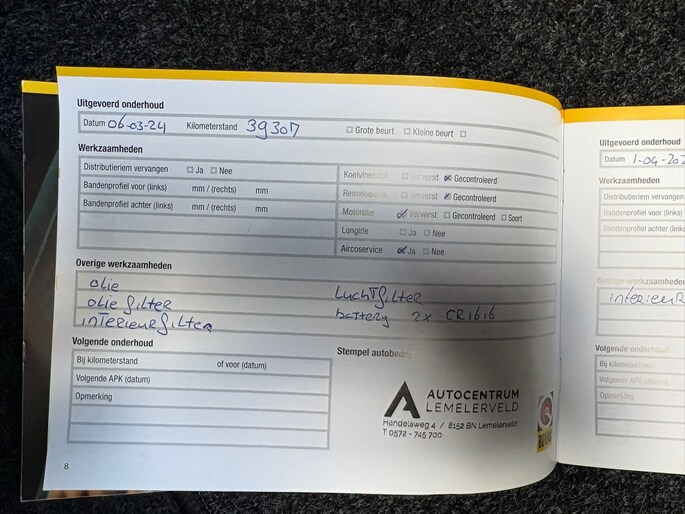 Uitgevoerd onderhoud
Datum 06-03-24 Kilometerstand 39307 Grote beurt Kleine beurt
Werkzaamheden
Distributieriem vervangen Ja Nee
Bandenprofiel voor (links) mm / (rechts) mm
Bandenprofiel achter (links) mm / (rechts) mm
Koelvloeistof Ververst Gecontroleerd
Remvloeistof Ververst Gecontroleerd
Motorolie Ververst Gecontroleerd Soort
Longlife Ja Nee
Aircoservice Ja Nee
Overige werkzaamheden
olie
olie filter
interieurfilter
Luchtfilter
battery 2x CR1616
Volgende onderhoud
Bij kilometerstand of voor (datum)
Volgende APK (datum)
Opmerking
Stempel autobedrijf
AUTOCENTRUM
LEMELERVELD
Handelsweg 4 / 8152 BN Lemelerveld
T 0572 - 745 700
8
Uitgevoerd onderhoud
Datum 1-04-202
Werkzaamheden
Distributieriem vervangen
Bandenprofiel voor (links)
Bandenprofiel achter (links)
Overige werkzaamheden
interieur
Volgende onderhoud
Bij kilometerstand
Volgende APK (datum)
Opmerking